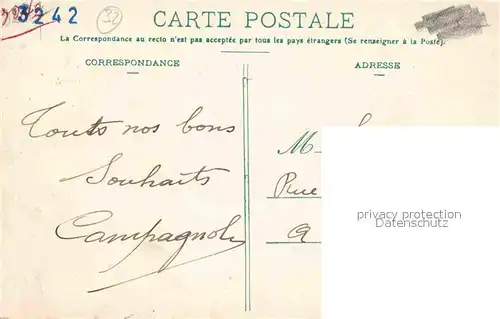 33242
32
CARTE POSTALE
La Correspondance au recto n'est pas acceptée par tous les pays étrangers (Se renseigner à la Poste).
CORRESPONDANCE
ADRESSE
Touts nos bons
Souhaits
Campagnole
M
Rue
a
privacy protection
Datenschutz